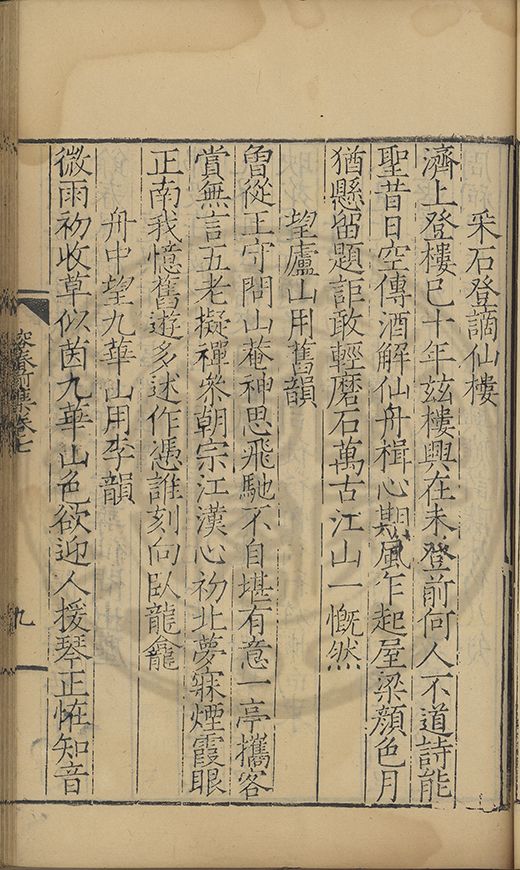 采石登謫仙樓
濟上登樓已十年茲樓興在未登前何人不道詩能
聖昔日空傳酒解仙舟楫心期風乍起屋梁顏色月
猶懸留題詎敢輕磨石萬古江山一慨然
望廬山用舊韻
曾從王守問山菴神思飛馳不自堪有意一亭攜客
賞無言五老擬禪參朝宗江漢心初北夢寐煙霞眼
正南我憶舊遊多述作憑誰刻向臥龍龕
舟中望九華山用李韻
微雨初收草似茵九華山色欲迎人援琴正恠知音
容春前集卷七
九